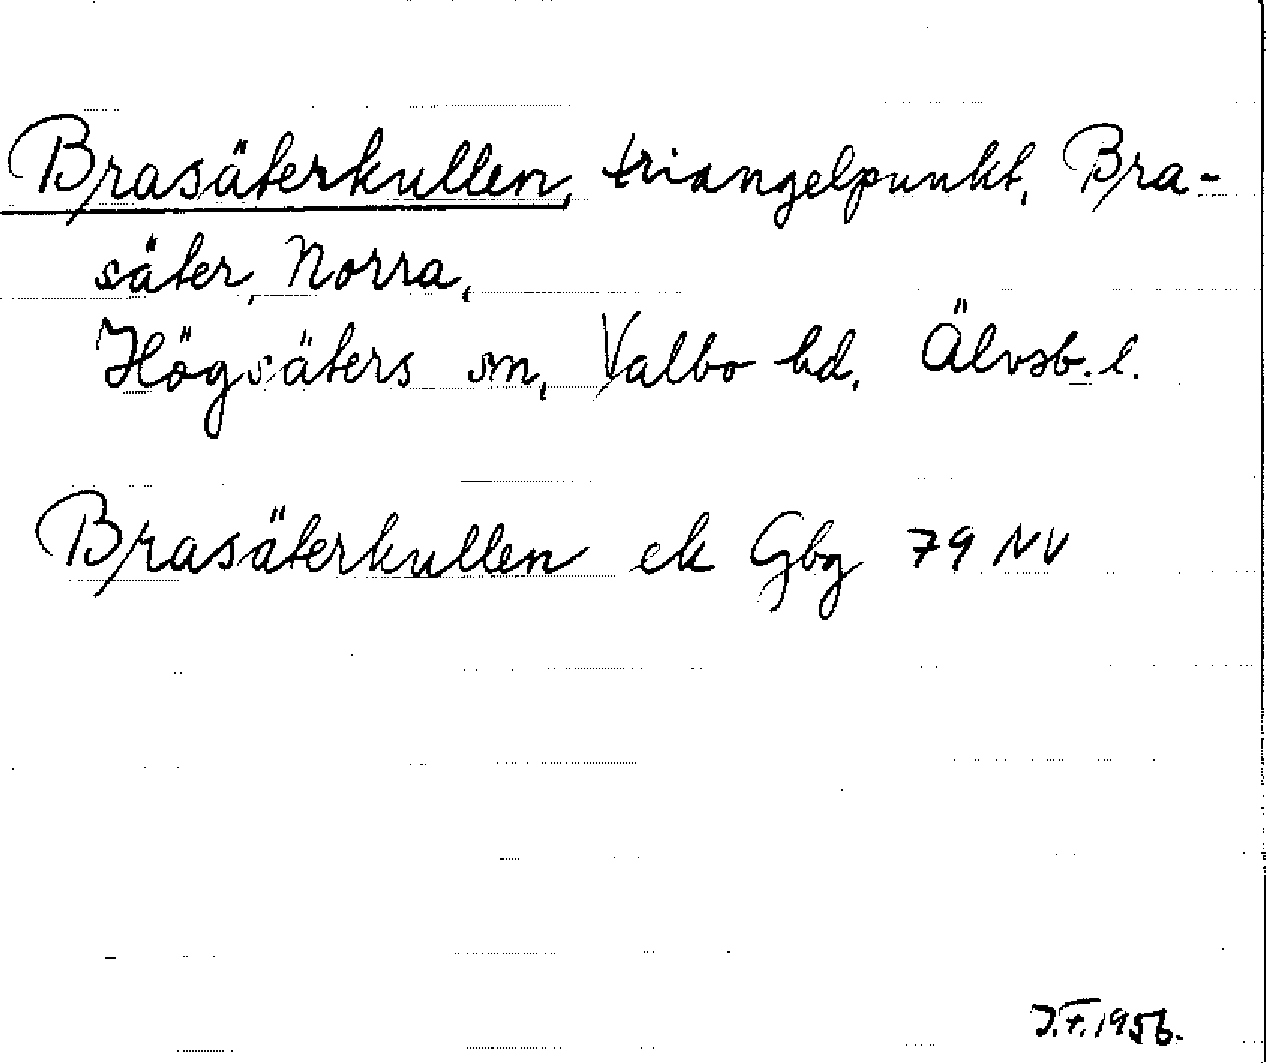 Brasäterkullen, triangelpunkt, Bra-
säter, Norra,
Högsäters sn, Valbo hd, Älvsb. l.
Brasäterkullen ek Gbg 79 NV
J.F. 1956.